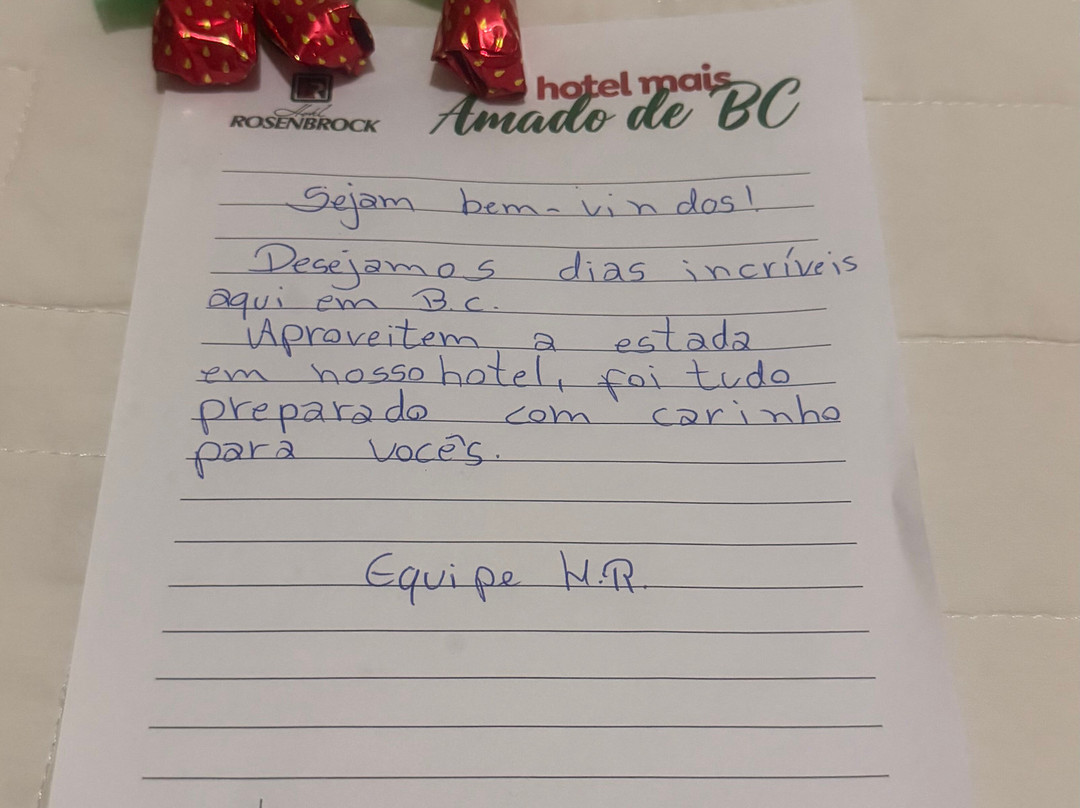 R
Hotel
ROSENBROCK
hotel mais
Amado de BC
Sejam bem-vindos!
Desejamos dias incríveis
aqui em B.C.
Aproveitem a estada
em nosso hotel, foi tudo
preparado com carinho
para vocês.
Equipe H.R.